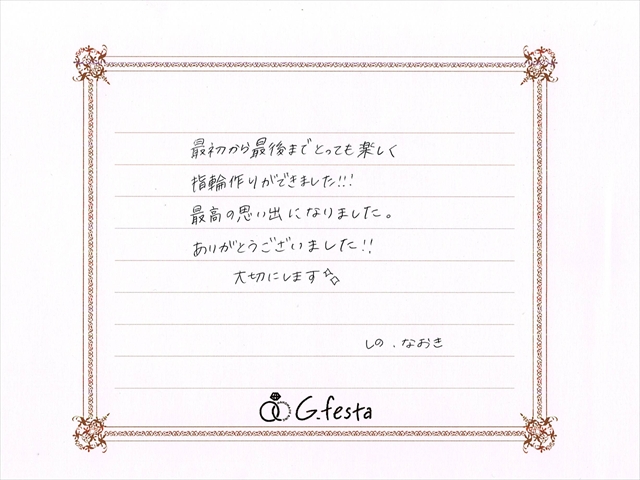 最初から最後までとっても楽しく
指輪作りができました!!!
最高の思い出になりました。
ありがとうございました!!
大切にします✧✧
しの、なおき
G.festa